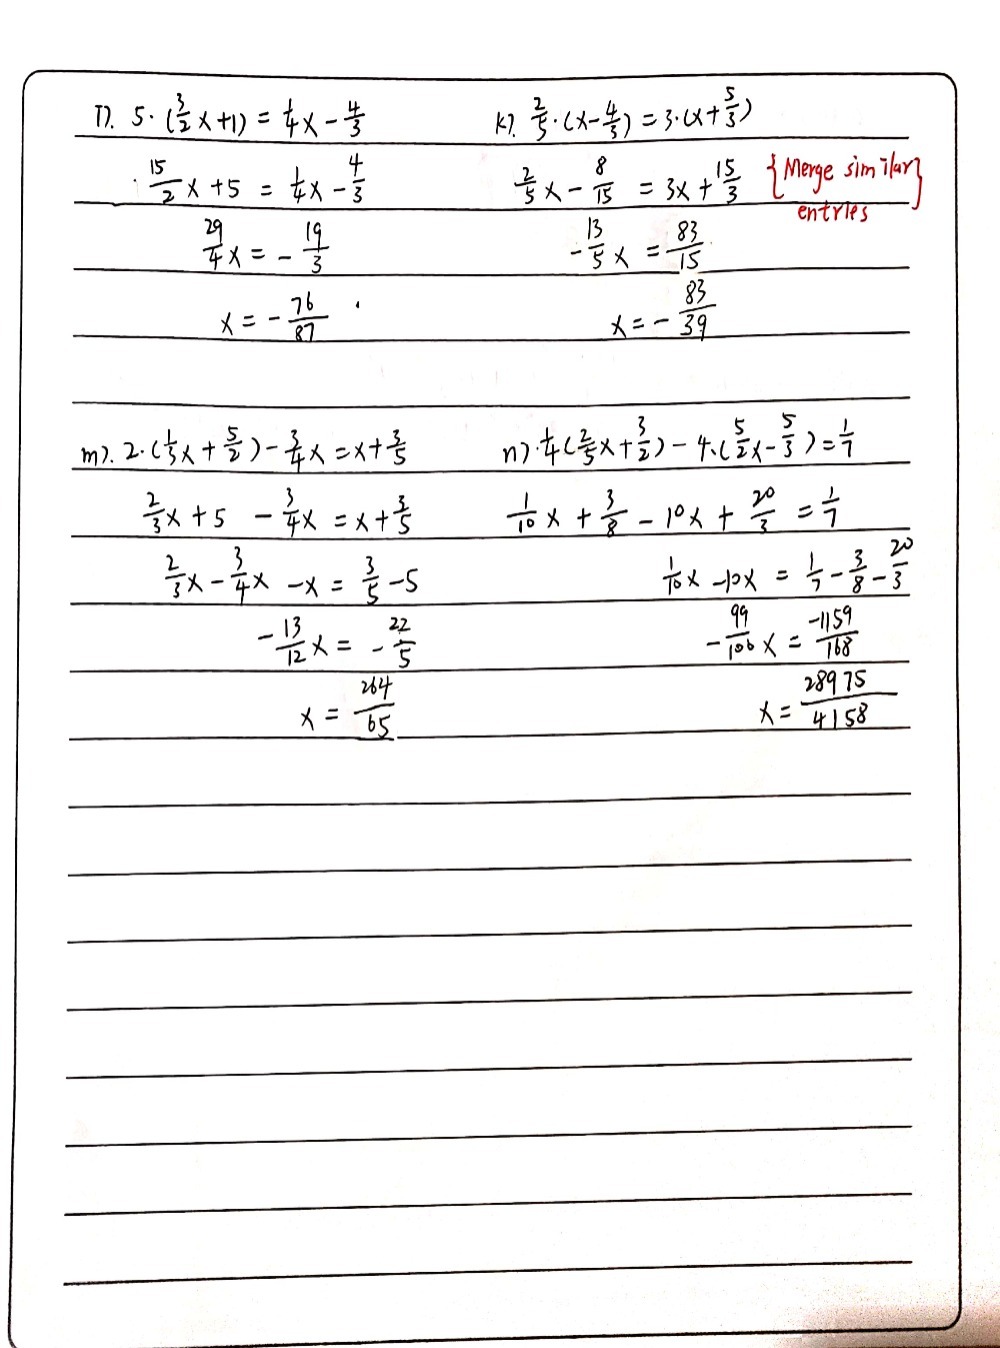 I). 5·(3/2x+1) = 1/4x - 4/3
15/2x + 5 = 1/4x - 4/3
29/4x = - 19/3
x = - 76/87
k). 2/5·(x-4/3) = 3·(x+5/3)
2/5x - 8/15 = 3x + 15/3 {Merge similar
entries}
-13/5x = 83/15
x = - 83/39
m). 2·(1/3x+5/2) - 3/4x = x+3/5
2/3x + 5 - 3/4x = x+3/5
2/3x - 3/4x - x = 3/5 - 5
-13/12x = - 22/5
x = 264/65
n).·1/4(2/5x+3/2) - 4·(5/2x-5/3) = 1/7
1/10x + 3/8 - 10x + 20/3 = 1/7
1/10x - 10x = 1/7 - 3/8 - 20/3
-99/100x = -1159/168
x = 28975/4158